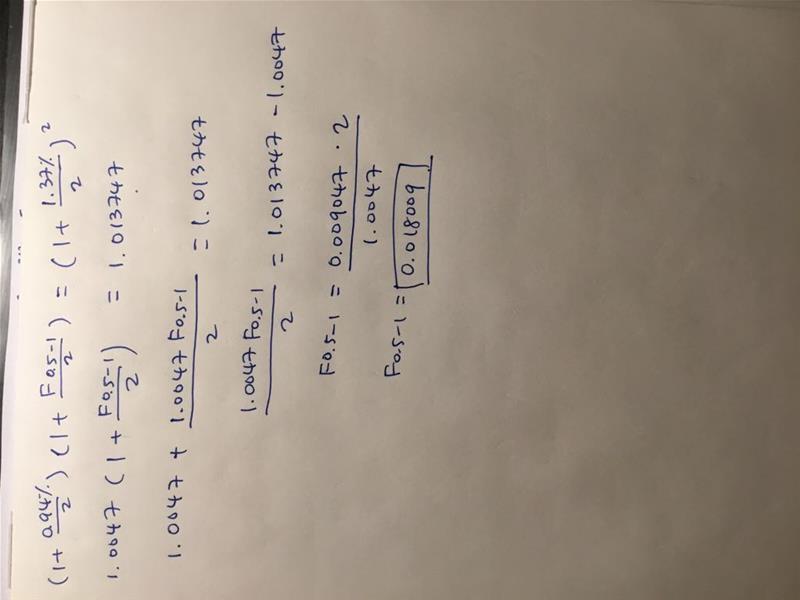 (1 + 0.94%/2) (1 + F0.5-1/2) = (1 + 1.37%/2)²
1.0047 (1 + F0.5-1/2) = 1.013747
1.0047 + 1.0047 F0.5-1/2 = 1.013747
1.0047 F0.5-1/2 = 1.013747 - 1.0047
F0.5-1 = 0.009047 · 2/1.0047
F0.5-1 = 0.018009